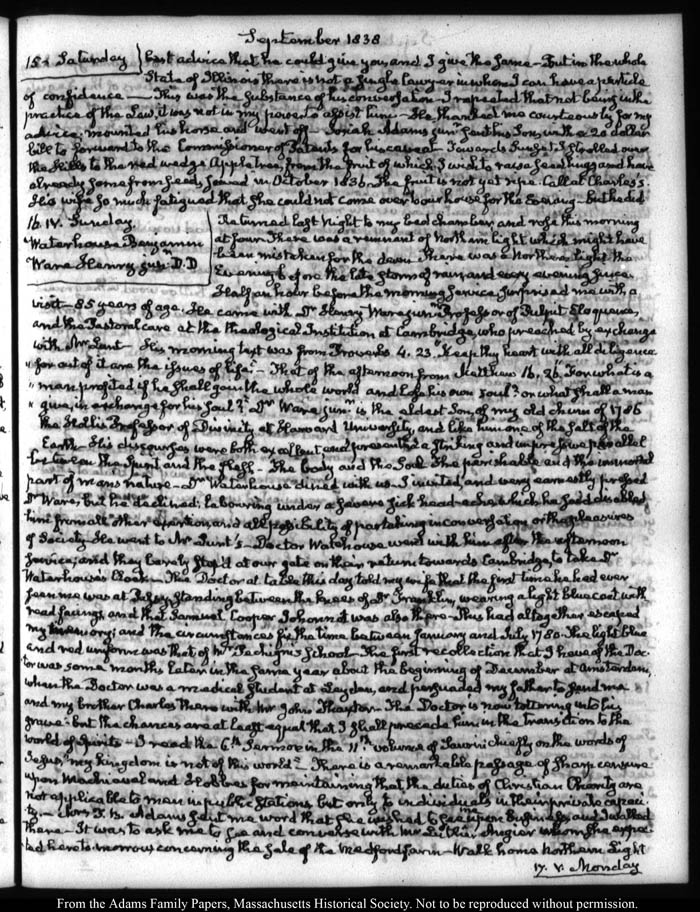 September 1838
15. Saturday best advice that he could give you, and I give the same — But in the whole
State of Illinois there is not a single lawyer in whom I can have a particle
of confidence — This was the substance of his conversation — I repeated that not being in the
practice of the Law, it was not in my power to assist him — He thanked me courteously for my
advice, mounted his horse and went off — Josiah Adams junr. sent his Son, with a 20 dollar
bill to forward to the Commissioner of Patents for his caveat — Towards Sunset, I strolled over
the Hills to the red wedge Appletree, from the fruit of which, I wish to raise seedlings and have
already some from seeds sowed in October 1836. The fruit is not yet ripe. Call at Charles's.
His wife so much fatigued that she could not come over to our house for the Evening — but he did
16. IV. Sunday Returned last Night to my bed chamber, and rose this morning
Waterhouse Benjamin at four. There was a remnant of Northern light which might have
Ware Henry junr. D.D been mistaken for the dawn. There was a Northern light the
Evening before the late storm of rain and every evening since.
Half an hour before the morning service, surprised me with a
visit — 85 years of age. He came with Dr. Henry Ware junr. Professor of Pulpit Eloquence,
and the Pastoral care at the theological Institution at Cambridge, who preached by exchange
with Mr. Lunt — His morning text was from Proverbs 4. 23. "Keep thy heart with all diligence
" for out of it are the issues of life." — That of the afternoon from Matthew 16. 26. For what is a
" man profited if he shall gain the whole world and lose his own soul? or what shall a man
" give, in exchange for his soul?" Dr. Ware junr. is the eldest Son, of my old chum of 1786
the Hollis Professor of Divinity at Harvard University, and like him one of the salt of the
Earth — His discourses were both excellent and presented a striking and impressive parallel
between the Spirit and the flesh — The body and the Soul. The perishable and the immortal
part of mans nature — Dr. Waterhouse dined with us — I invited, and very earnestly pressed
Dr. Ware, but he declined; labouring under a severe sick head-ache, which he said disabled
him from all other exertion, and all possibility of partaking in conversation or the pleasures
of Society. He went to Mr. Lunt's — Doctor Waterhouse went with him after the afternoon
service, and they barely stop'd at our gate on their return towards Cambridge, to take Dr.
Waterhouse's Cloak — The Doctor at table this day told my wife that the first time he had ever
seen me was at Passy, standing between the knees of Dr. Franklin, wearing a light blue coat with
read facings, and that Samuel Cooper Johonnot was also there — This had altogether escaped
my memory; and the circumstances fix the time between January and July 1780. The light blue
and red uniform was that of Mr. Pechigni's School — The first recollection that I have of the Doc-
tor was some months later in the same year about the beginning of December at Amsterdam,
when the Doctor was a medical student at Leyden, and persuaded my father to send me
and my brother Charles there with Mr. John Thaxter. The Doctor is now tottering into his
grave: but the chances are at least equal that I shall precede him in the transition to the
world of Spirits — I read the 6th. Sermon in the 11th. volume of Saurin chiefly on the words of
Jesus, "my Kingdom is not of this world" — There is a remarkable passage of sharp censure
upon Machiavel and Hobbes for maintaining that the duties of Christian Charity are
not applicable to men in public stations, but only to individuals in their private capaci-
ty — Mrs. T. B. Adams sent me word that she wished to see me upon business and I walked
there — It was to ask me to see and converse with Mr. Angier whom she expec-
ted here to-morrow concerning the sale of the Medford farm — Walk home Northern Light
17. V. Monday
From the Adams Family Papers, Massachusetts Historical Society. Not to be reproduced without permission.